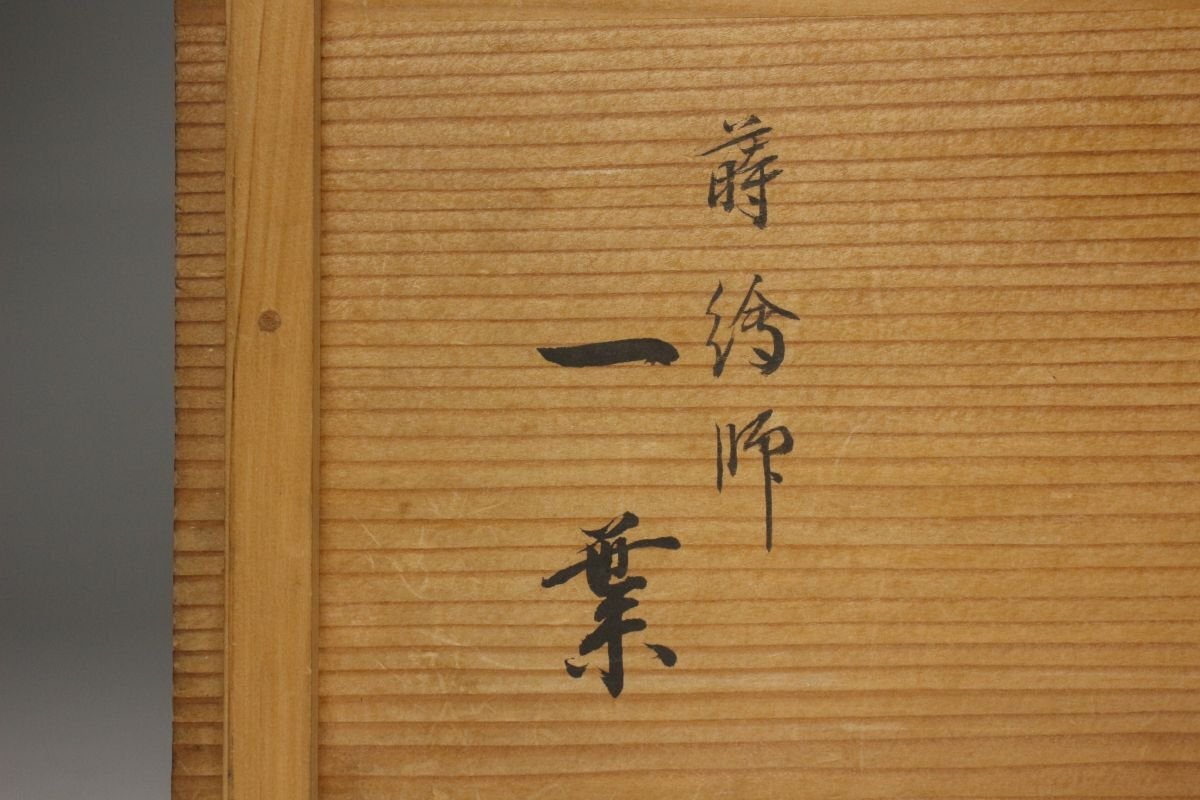 蒔繪師
一葉